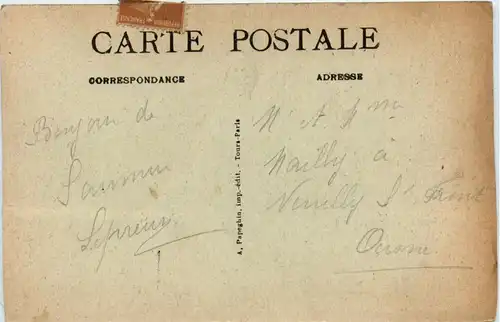 CARTE POSTALE
CORRESPONDANCE
ADRESSE
Bonjour de
Saumur
A. Papeghin, imp.-édit. - Tours-Paris
M A Mme
Mailly à
Neuilly St Front